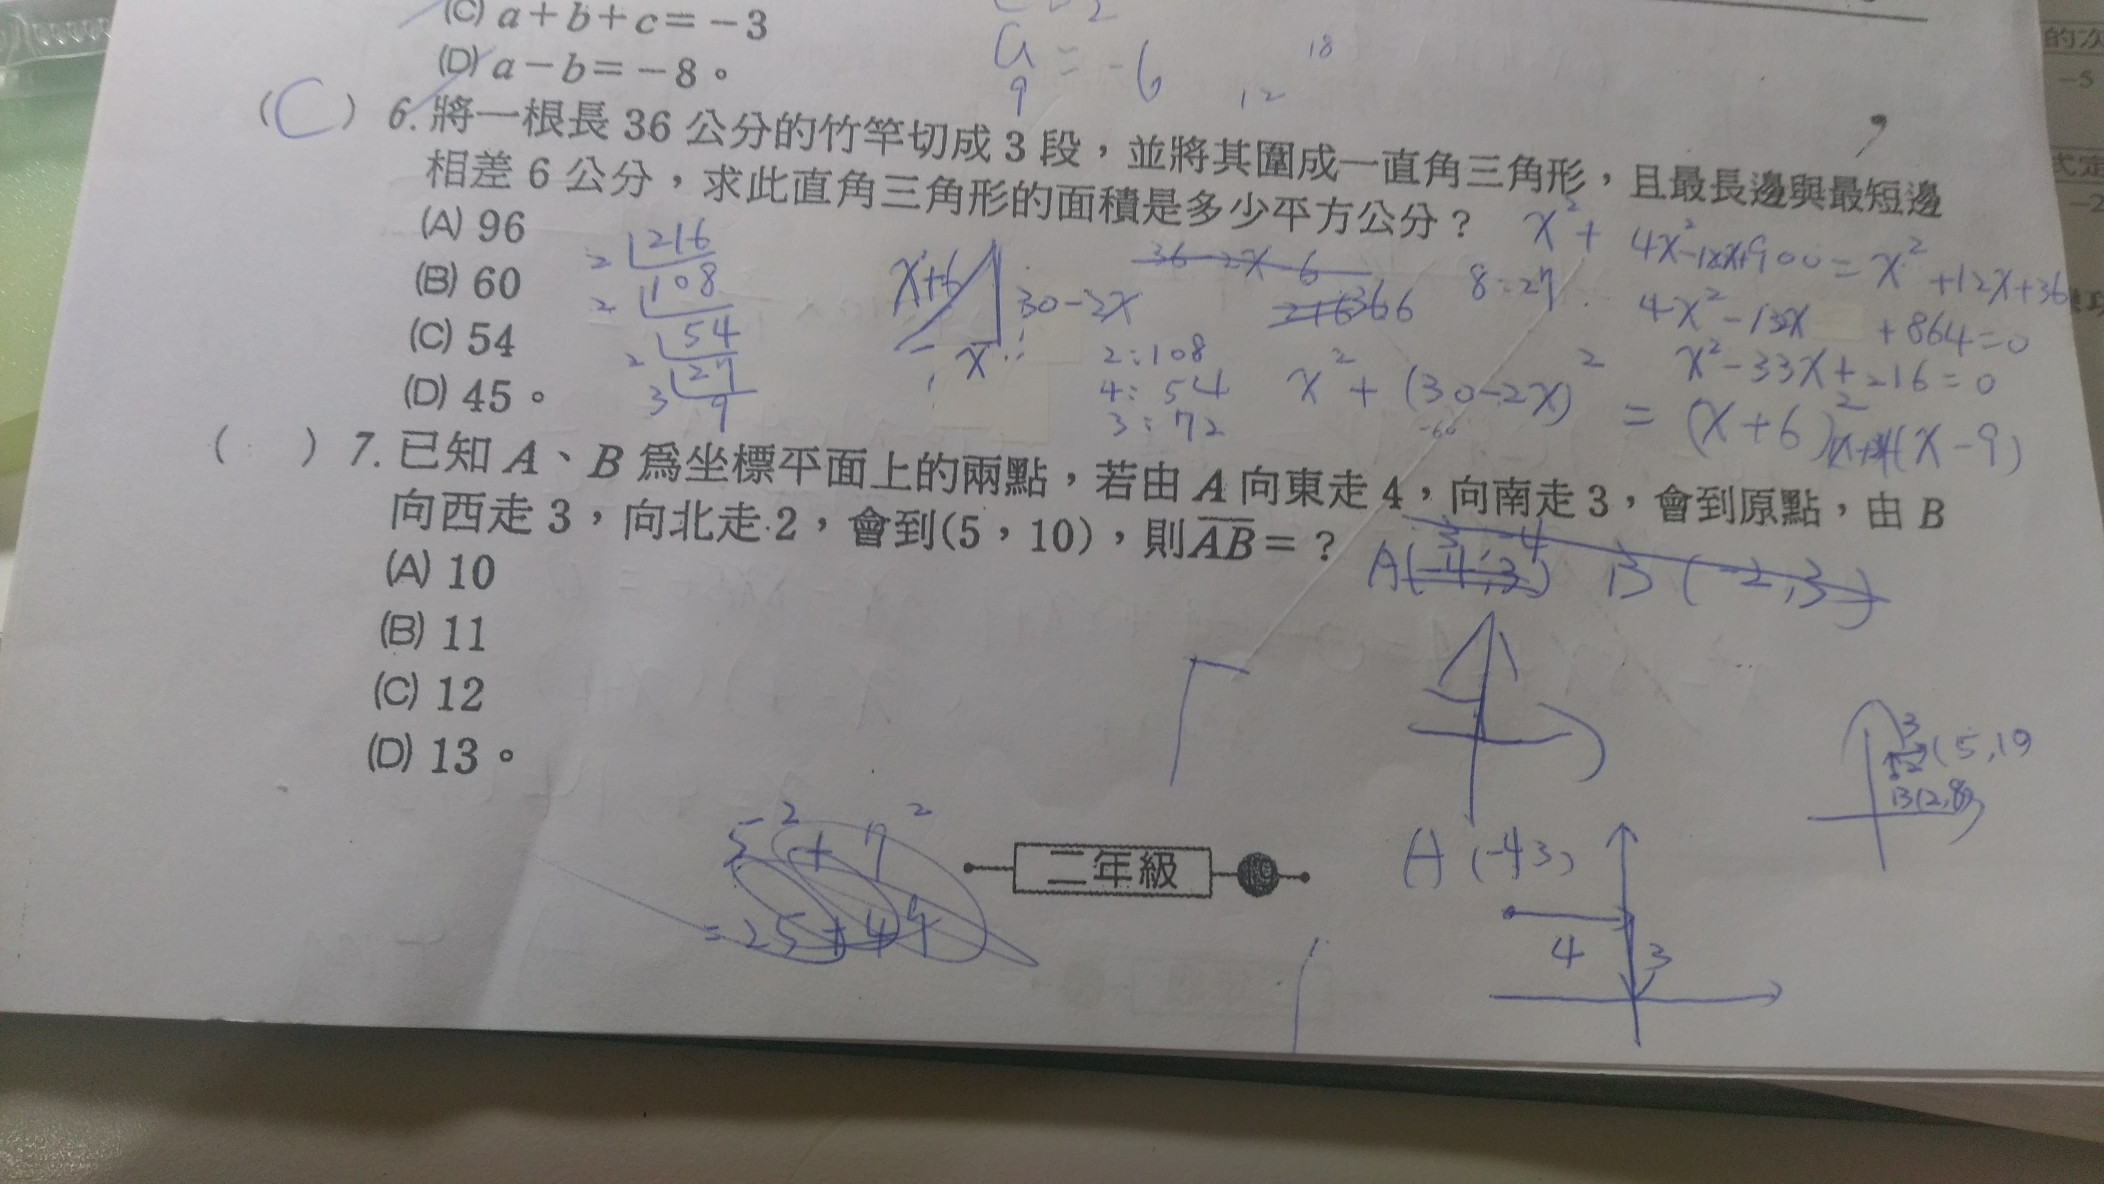 (C) a+b+c=-3
(D) a-b=-8。
a = -6
9
18
12
(C) 6. 將一根長 36 公分的竹竿切成 3 段，並將其圍成一直角三角形，且最長邊與最短邊
相差 6 公分，求此直角三角形的面積是多少平方公分？
(A) 96
(B) 60
(C) 54
(D) 45。
2 216
2 108
2 54
3 27
9
x+6
30-2x
x
36-2x-6
8:27
2:108
4:54
3:72
x²+(30-2x)² = (x+6)²
x²+4x²-12x+900=x²+12x+36
4x²-132x+864=0
x²-33x+216=0
(x-9)
( ) 7. 已知 A、B 為坐標平面上的兩點，若由 A 向東走 4，向南走 3，會到原點，由 B
向西走 3，向北走 2，會到(5，10)，則AB=？
(A) 10
(B) 11
(C) 12
(D) 13。
B(-2,3)
3
(5,10
B(2,8)
5²+7²
=25+49
二年級
19
A(-4,3)
4
3
的次
-5
式定
-2